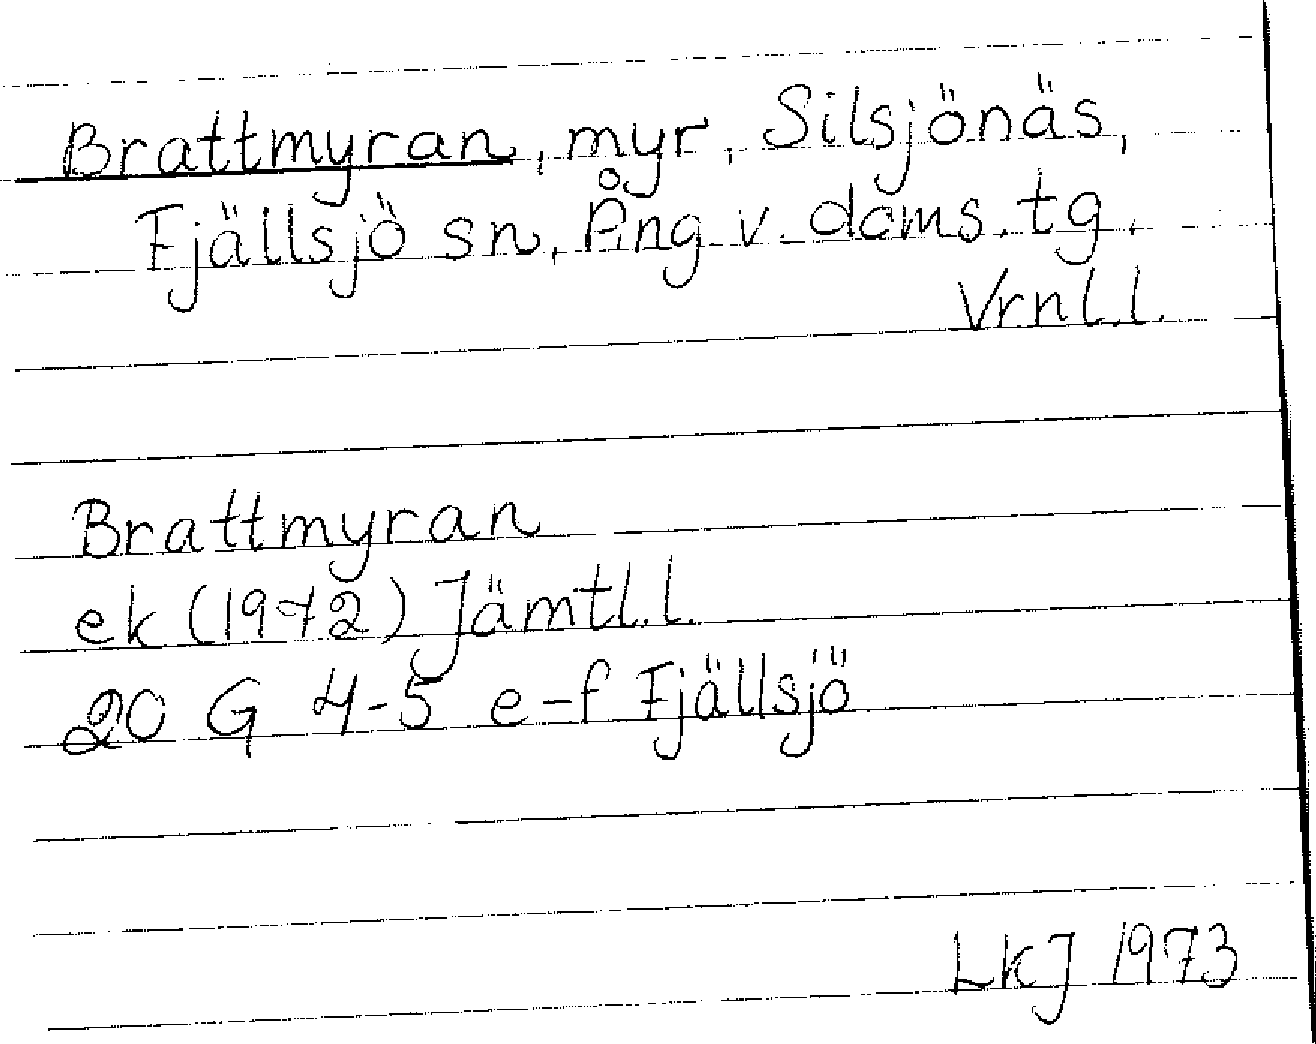 Brattmyran, myr, Silsjönäs,
Fjällsjö sn, Ång v. doms. tg.
Vrnl.l.
Brattmyran
ek (1972) Jämtl.l.
20 G 4-5 e-f Fjällsjö
LKJ 1973